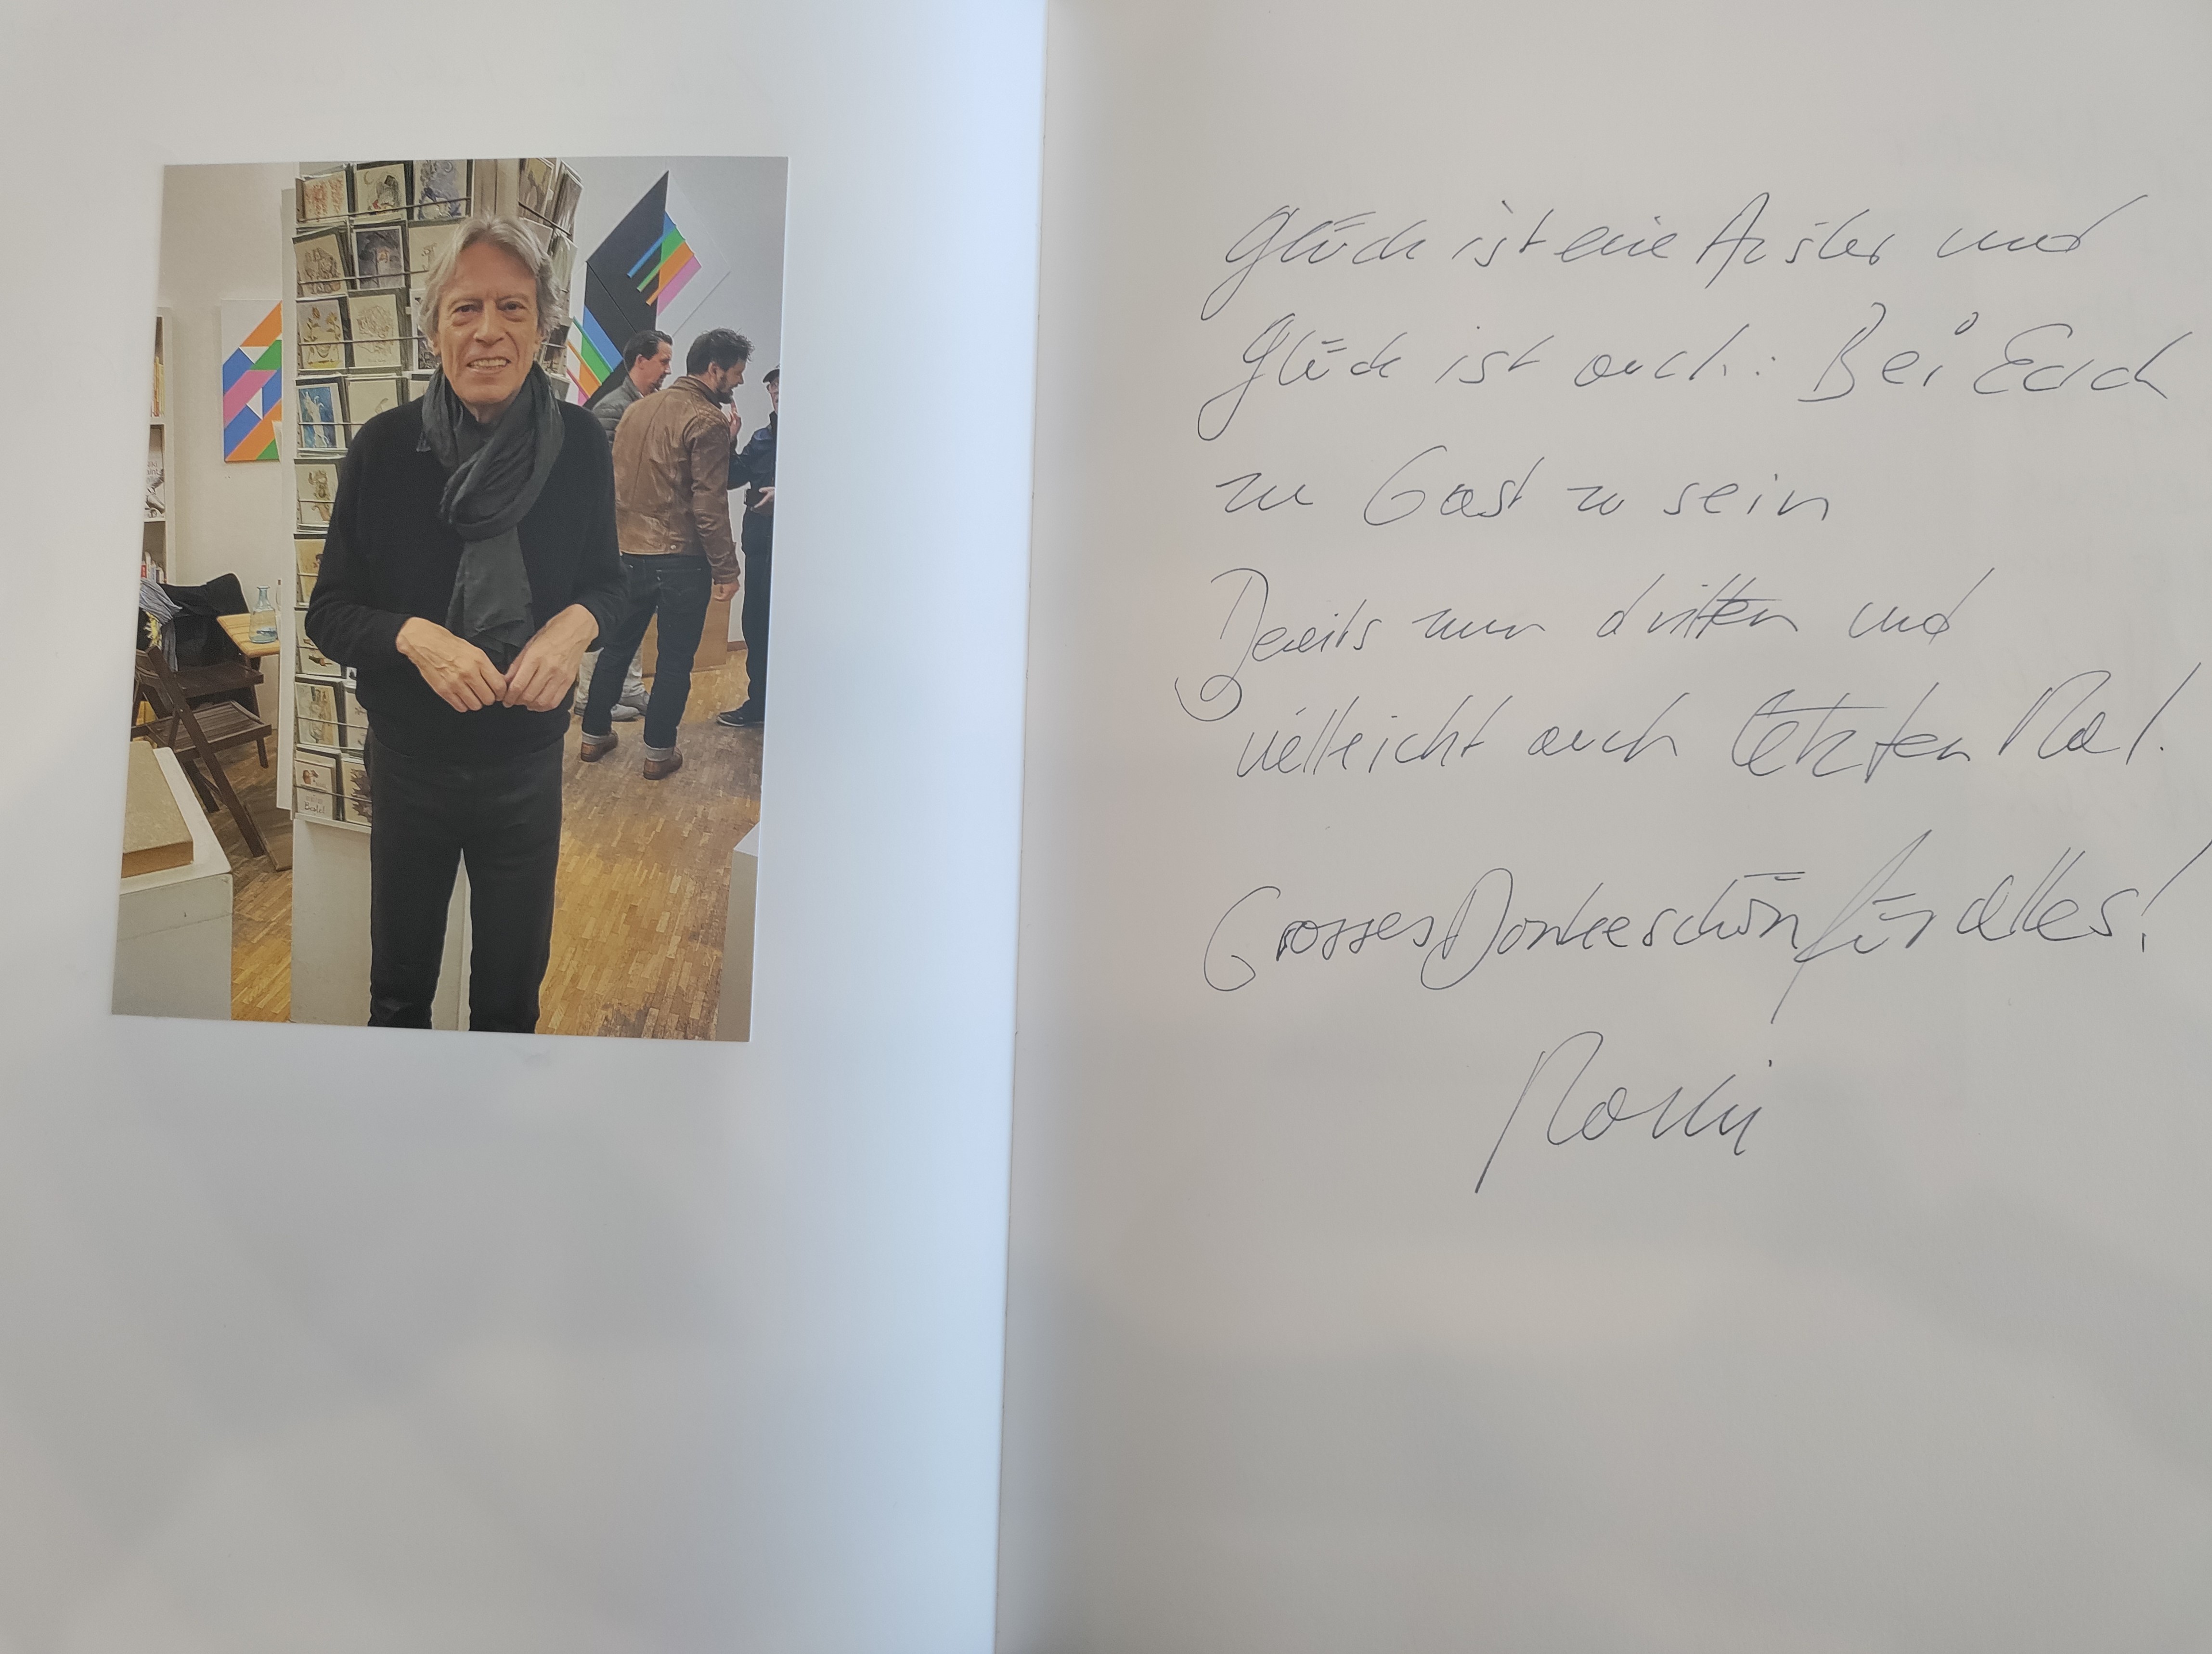 Glück ist eine Auster und
Glück ist auch: Bei Euch
zu Gast zu sein
Bereits zum dritten und
vielleicht auch letzten Mal.
Grosses Dankeschön für alles!